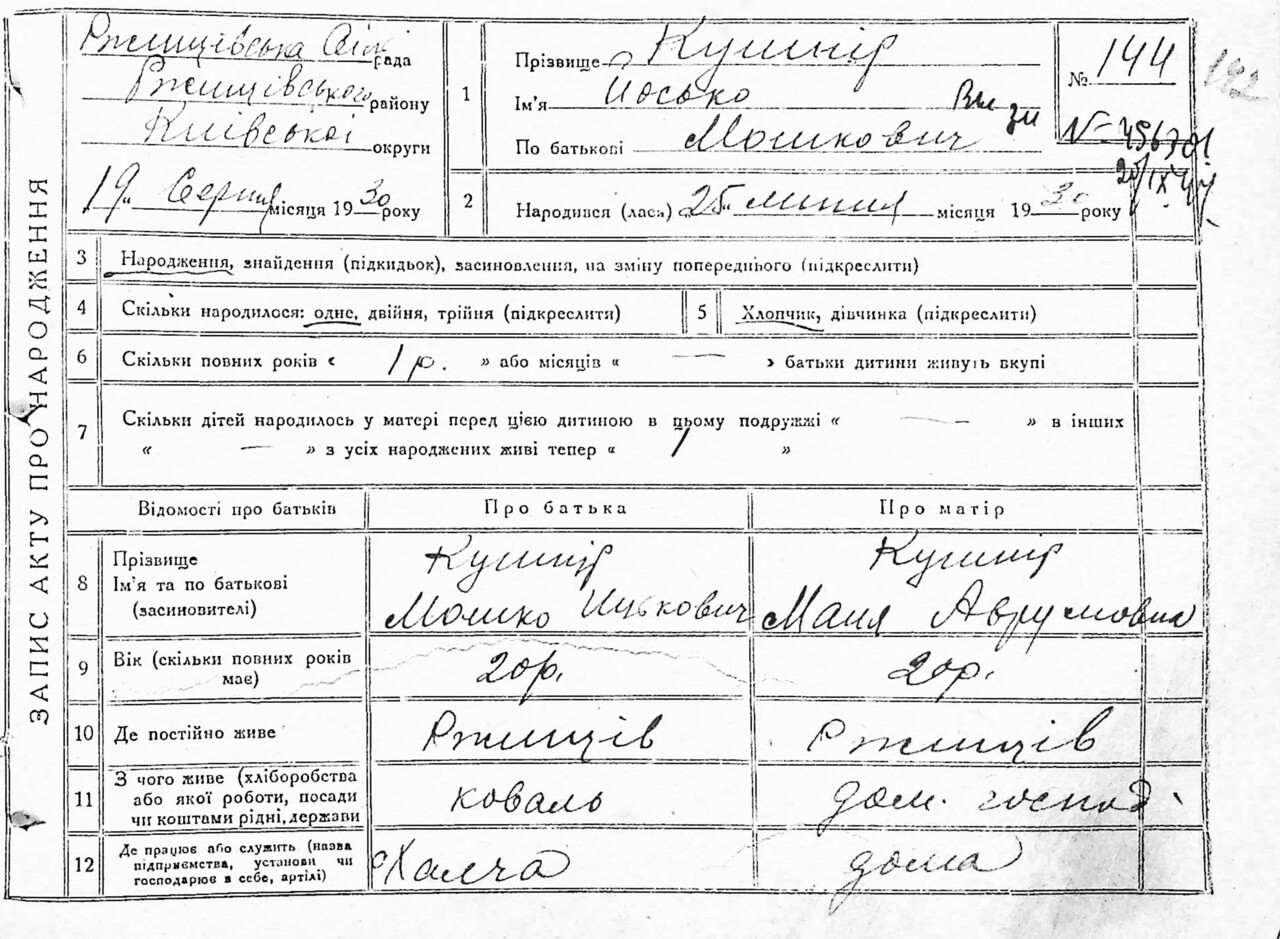 ЗАПИС АКТУ ПРО НАРОДЖЕННЯ
Ржищівська Сіль рада
Ржищівського району
Київської округи
19" Серпня місяця 1930 року
1
Прізвище Кушнір
Ім'я Йосько
По батькові Мошкович
№ 144
142
2
Народився (лася) 25" липня місяця 1930 року
3 Народження, знайдення (підкидьок), засиновлення, на зміну попереднього (підкреслити)
4 Скільки народилося: одне, двійня, трійня (підкреслити)
5 Хлопчик, дівчинка (підкреслити)
6 Скільки повних років « 1 р. » або місяців « — » батьки дитини живуть вкупі
7 Скільки дітей народилось у матері перед цією дитиною в цьому подружжі « — » в інших
« — » з усіх народжених живі тепер « 1 »
Відомості про батьків Про батька Про матір
8 Прізвище
Ім'я та по батькові
(засиновителі)
Кушнір
Мошко Ицькович
Кушнір
Маня Аврумовна
9 Вік (скільки повних років
має)
20р. 20р.
10 Де постійно живе Ржищів Ржищів
11 З чого живе (хліборобства
або якої роботи, посади
чи коштами рідні, держави
коваль дом. господ.
12 Де працює або служить (назва
підприємства, установи чи
господарює в себе, артілі)
Халча дома